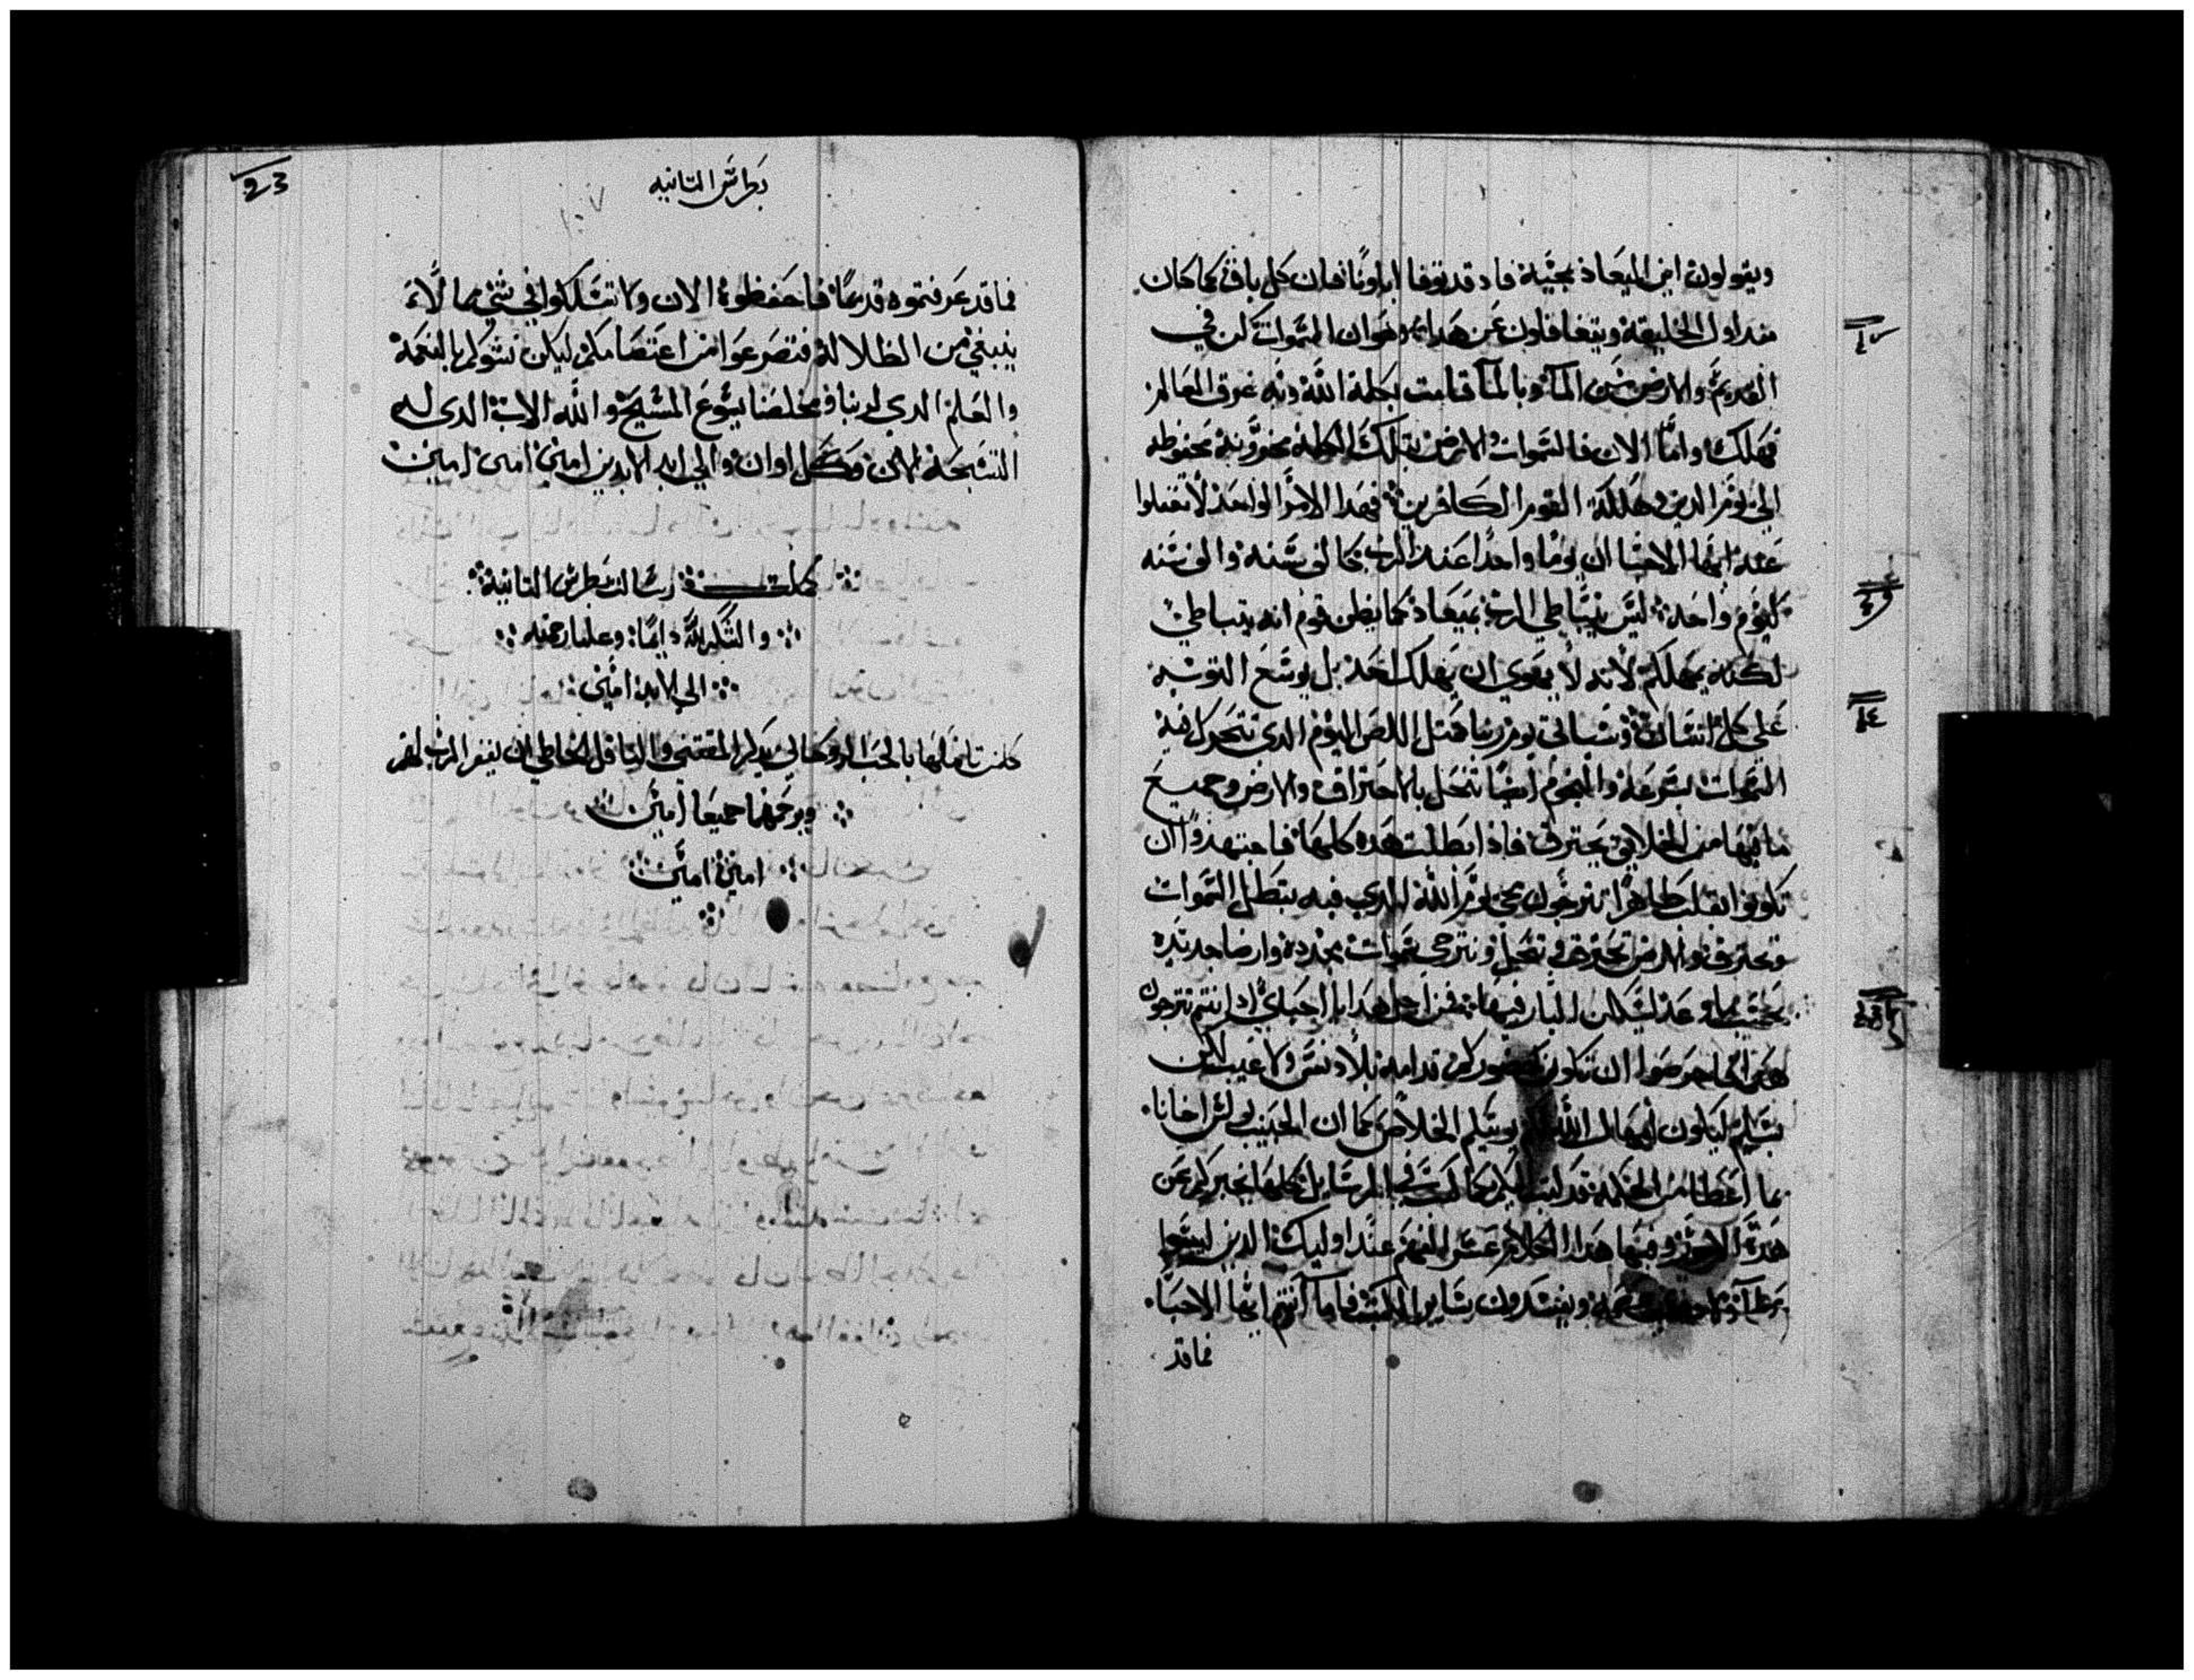 ويقولون اين الميعاد بمجيه فاد قد توفا اباونا فان كل باق كما كان
مند اول الخليقة ويتغافلون عن هدا وهو ان السموات كن في
القديم والارض من الما وبالما قامت بكلمة الله وبه غرق العالم
فهلك واما الان فالسموات والارض بتلك الكلمة مخزونة محفوظه
الى يوم الدين وهلكة القوم الكافرين فهدا الامر الواحد لا تغفلوا
عنه ايها الاحبا ان يوما واحدا عند الرب كالف سنة والف سنه
كيوم واحد ليس يتباطي الرب بميعاد كما يظن قوم انه يتباطي
لكنه يمهلكم لانه لا يهوي ان يهلك احد بل يوسع التوبه
على كل انسان وسياتي يوم ربنا متل اللص اليوم الدي تتحل فيه
السموات بسرعة والنجوم ايضا تنحل بالاحتراق والارض وجميع
ما فيها من الخلايق يحترق فاذا بطلت هده كلها فاجتهدوا ان
تكونوا بتقلب طاهر تترجون مجي يوم الله الدي فيه تبطل السموات
وتحترق والارض تحترق وتضمحل ونترجى سموات مجدده وارضا جديده
بحسب ما وعد ليسكن البار فيها من اجل هدا يا احباي اد انتم تترجون
هده احرصوا ان تكون قدامه بلا دنس ولا عيب
بسلم ليكون امهال الله الخلاص كما ان الحبيب بولس اخانا
بما اعطا من الحكمة قد كتب اليكم كما كتب في الرسايل كلها يخبركم عن
هده الامور وفيها هدا الكلام عسر الفهم عند اوليك الدين ليسوا
ويفسدون ساير الكتب فاما انتم ايها الاحبا
فما قد
23
بطرس التانيه
فما قد عرفتموه قديما فاحفظوه الان ولا تسلكوا في شي مما لا
ينبغي من الظلالة فتصرعوا من اعتصامكم ليكن نشوكم بالنعمة
والعلم الدي لربنا ومخلصنا يسوع المسيح والله الاب الدي له
التسبحة الان وكل اوان والي ابد الابدين امين امين امين
كملت رسالة بطرس التانية
والشكر لله دايما وعلينا رحمته
الي الابد امين
كلمن تاملها بالحب الروحاني يدكر المقتني والناقل الخاطي ان يغفر الرب لهم
ويرحمهما جميعا امين
امين امين